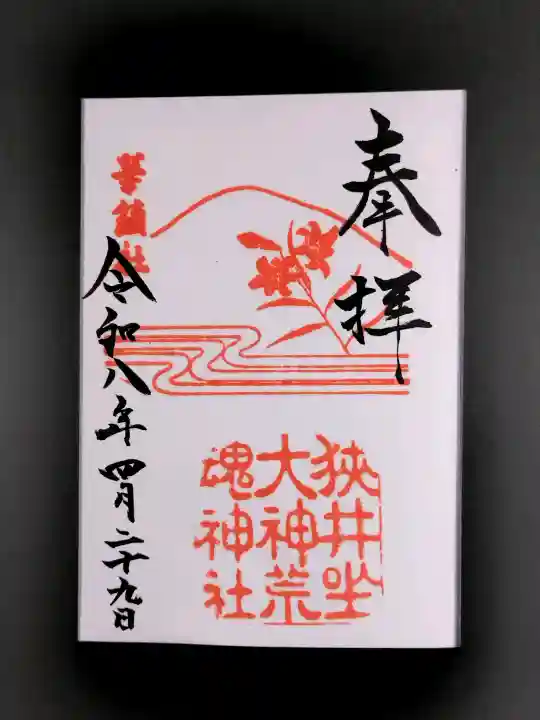 奉拝
狭井坐
大神荒
魂神社
令和八年四月二十九日